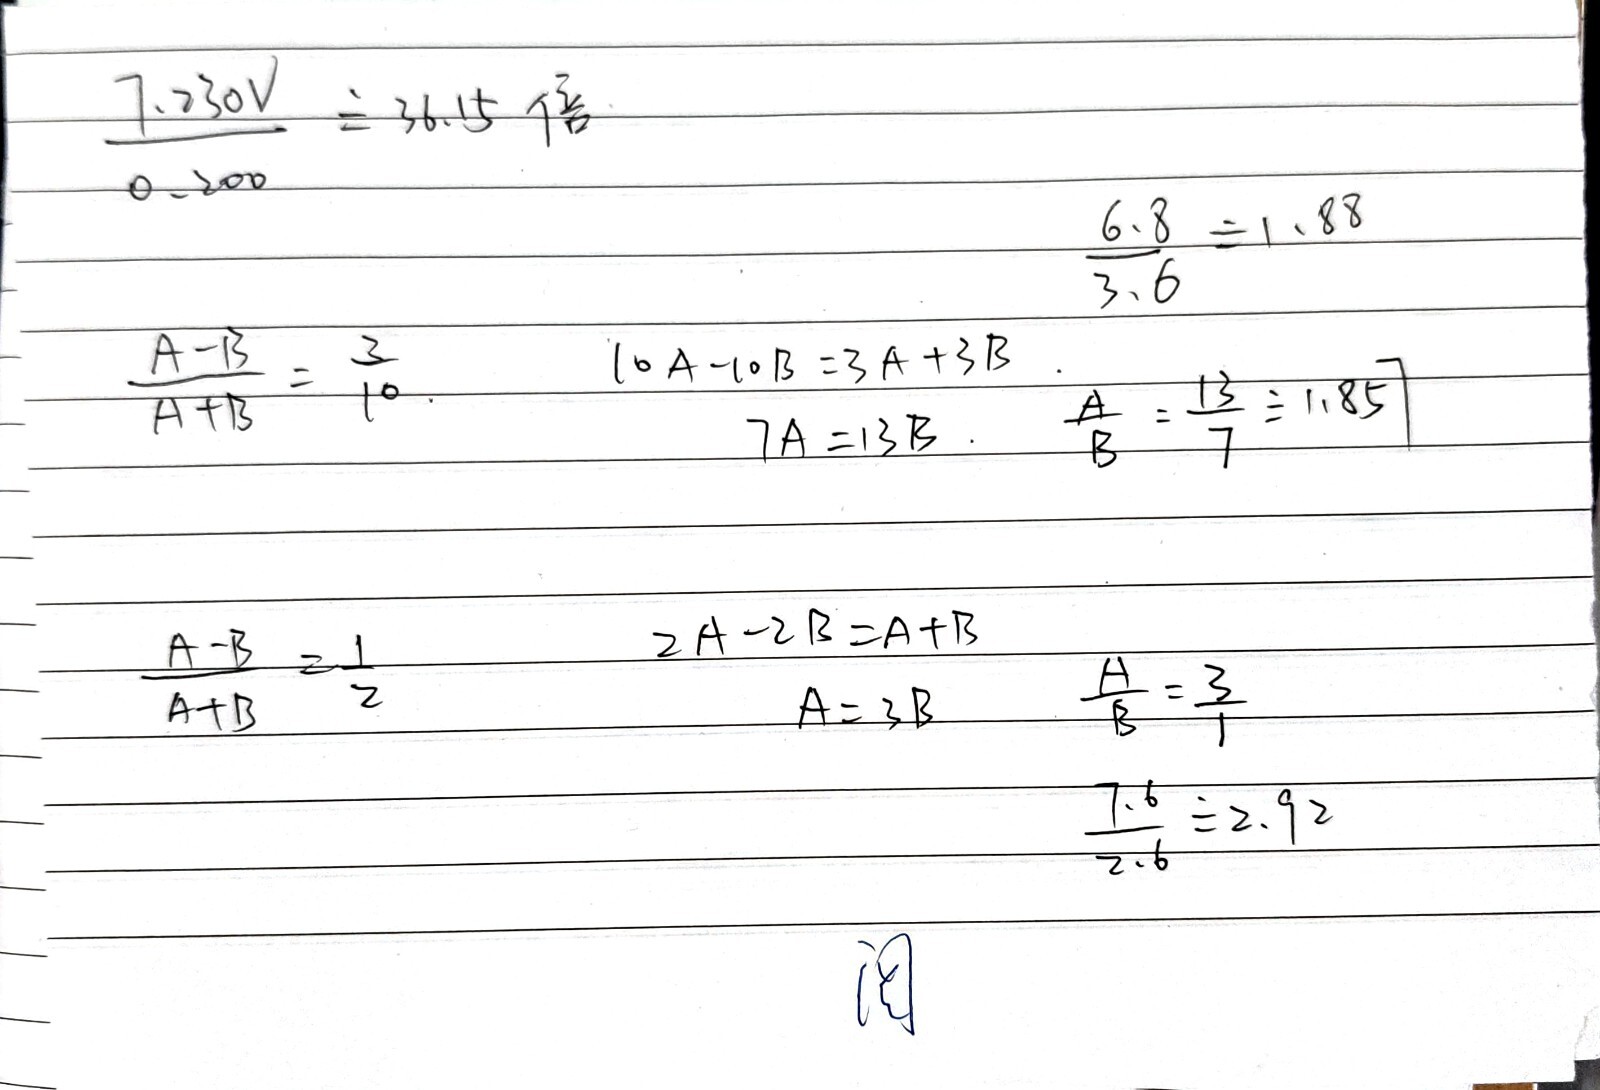 7.230V / 0.200 ≒ 36.15 倍
6.8 / 3.6 ≒ 1.88
A-B / A+B = 3 / 10.
10A-10B=3A+3B.
7A=13B.
A / B = 13 / 7 ≒ 1.857
A-B / A+B = 1 / 2
2A-2B=A+B
A=3B
A / B = 3 / 1
7.6 / 2.6 ≒ 2.92